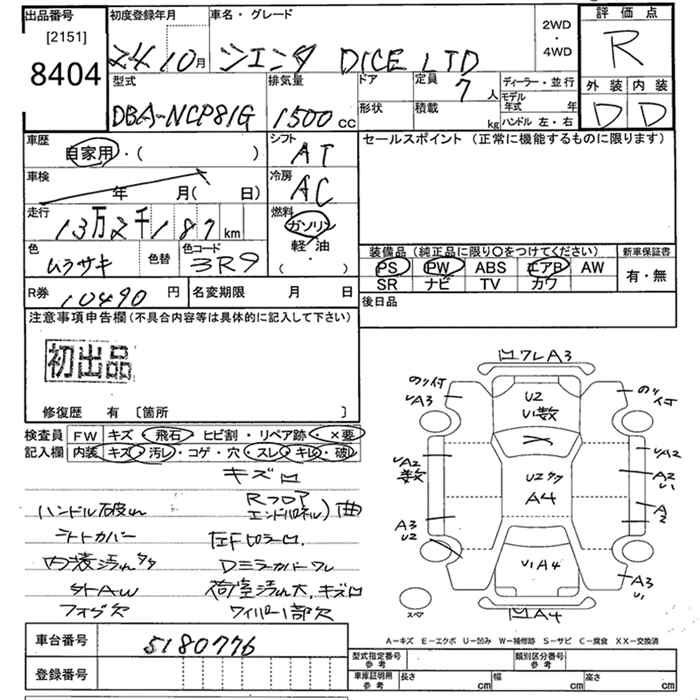 出品番号
[2151]
8404
初度登録年月
24 10月
車名・グレード
シエンタ DICE LTD
2WD
・
4WD
評価点
R
外装 内装
D D
型式
DBA-NCP81G
排気量
1500cc
ドア
形状
定員
7人
積載
kg
ディーラー・並行
モデル
年式 年
ハンドル 左・右
車歴
自家用・( )
シフト
AT
セールスポイント (正常に機能するものに限ります)
車検
年 月( 日)
冷房
AC
走行
13万2千187km
燃料
ガソリン
軽・油
・
( )
色
ムラサキ
色替
色コード
3R9
装備品 (純正品に限り○をつけてください)
PS PW ABS エアB AW
SR ナビ TV カワ
新車保証書
有・無
R券 10490円
名変期限 月 日
後日品
注意事項申告欄(不具合内容等は具体的に記入して下さい)
初出品
修復歴 有 [箇所 ]
検査員
記入欄
FW キズ・飛石・ヒビ割・リペア跡・×要
内装 キズ・汚レ・コゲ・穴・スレ・キレ・破レ
キズロ
ハンドル破れ
Rフロア
エンドパネル)曲
ライトカバー
内装汚れ多々
Dミラーカバーワレ
外AW
荷室汚れ大、キズロ
フォグ欠
ワイパー1部欠
ワレA3
A3
A3
U2
U1数
A2
数
A2
A2
U1
U2多々
A4
A3
U2
A2
U1A4
A3
U1
スペア
A4
A−キズ E−エクボ U−凹み W−補修跡 S−サビ C−腐食 XX−交換済
車台番号 5180776
登録番号
型式指定番号
参考
類別区分番号
参考
車庫証明用
参考
長さ cm 幅 cm 高さ cm